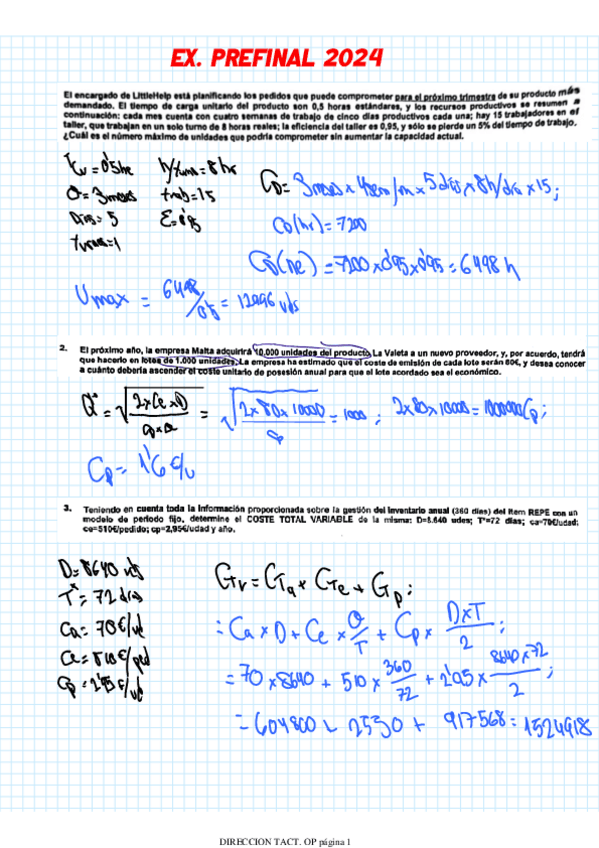 EX. PREFINAL 2024
El encargado de LittleHelp está planificando los pedidos que puede comprometer para el próximo trimestre de su producto más
demandado. El tiempo de carga unitario del producto son 0,5 horas estándares, y los recursos productivos se resumen a
continuación: cada mes cuenta con cuatro semanas de trabajo de cinco días productivos cada una; hay 15 trabajadores en el
taller, que trabajan en un solo turno de 8 horas reales; la eficiencia del taller es 0,95, y sólo se pierde un 5% del tiempo de trabajo.
¿Cuál es el número máximo de unidades que podría comprometer sin aumentar la capacidad actual.
h/turno = 8 hr
CD = 3 meses x 4 sem/m x 5 días x 8h/día x 15;
θ = 3 meses trab = 15
Días = 5
CD (hr) = 7200
turnos = 1
CD (he) = 7200 x 0'95 x 0'95 = 6498 h
Umax = 6498/0'5 = 12996 uds
2. El próximo año, la empresa Malta adquirirá 10.000 unidades del producto La Valeta a un nuevo proveedor, y, por acuerdo, tendrá
que hacerlo en lotes de 1.000 unidades. La empresa ha estimado que el coste de emisión de cada lote serán 80€, y desea conocer
a cuánto debería ascender el coste unitario de posesión anual para que el lote acordado sea el económico.
Q* = √(2 x Ce x D / Cp x θ) = √(2 x 80 x 10000 / Cp) = 1000 ; 2 x 80 x 10000 = 1000000 Cp;
Cp = 1'6 €/u
3. Teniendo en cuenta toda la información proporcionada sobre la gestión del inventario anual (360 días) del ítem REPE con un
modelo de periodo fijo, determine el COSTE TOTAL VARIABLE de la misma: D=8.640 udes; T*=72 días; ca=70€/udad;
ce=510€/pedido; cp=2,95€/udad y año.
D = 8640 uds
T* = 72 días
Ca = 70 €/ud
Ce = 510 €/ped
Cp = 2'95 €/ud
CTv = CTa + CTe + CTp;
= Ca x D + Ce x θ/T + Cp x D x T/2;
= 70 x 8640 + 510 x 360/72 + 2'95 x 8640 x 72/2;
= 604800 + 2550 + 917568 = 1524918
DIRECCION TACT. OP página 1